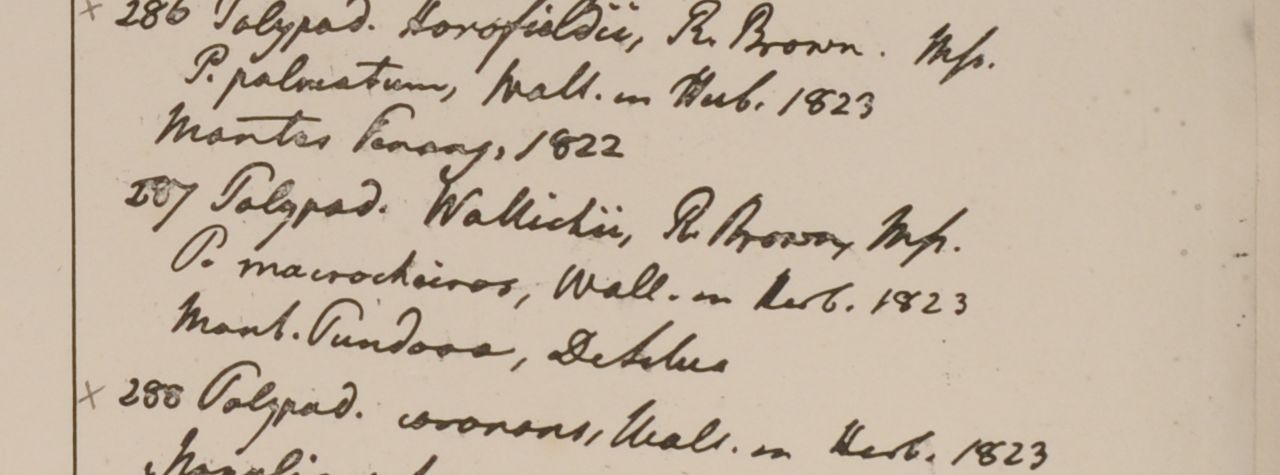 × 286 Polypod. Horsfieldii, R. Brown. Mss.
P. palmatum, Wall. in Herb. 1823
Montes Penang, 1822
287 Polypod. Wallichii, R. Brown, Mss.
P. macrocheiros, Wall. in Herb. 1823
Mont. Pundooa, De Silva
× 288 Polypod. coronans, Wall. in Herb. 1823